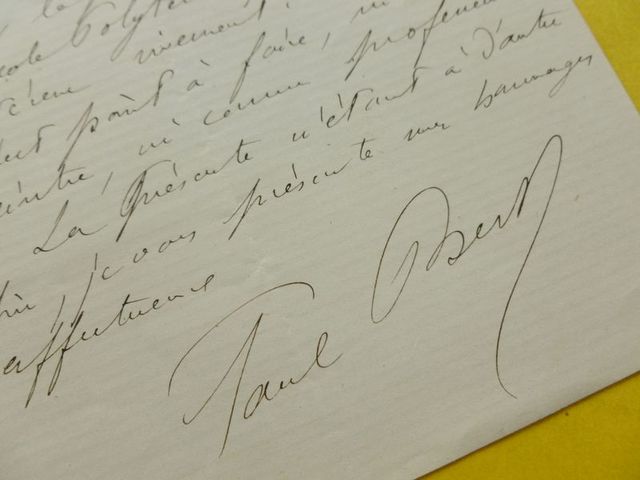 le
cole Polyte
vivement,
point à faire, ni
intre, ni comme professeur
La Présente n'étant à d'autre
fin, je vous présente mes hommages
affectueux
Paul Bert